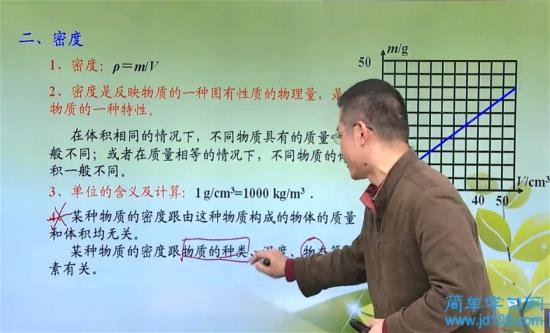 二、密度
1、密度：ρ＝m/V
2、密度是反映物质的一种固有性质的物理量，是
物质的一种特性。
在体积相同的情况下，不同物质具有的质量
般不同；或者在质量相等的情况下，不同物质的
积一般不同。
3、单位的含义及计算：1 g/cm³=1000 kg/m³．
某种物质的密度跟由这种物质构成的物体的质量
和体积均无关。
某种物质的密度跟物质的种类、温度、物态等
素有关。
50
m/g
V/cm³
40 50
简单学习网
www.jd100.com